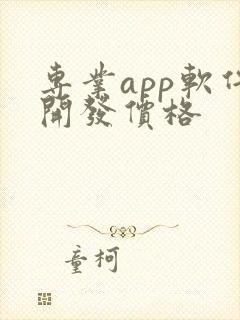 專業app軟件
開發價格
童柯